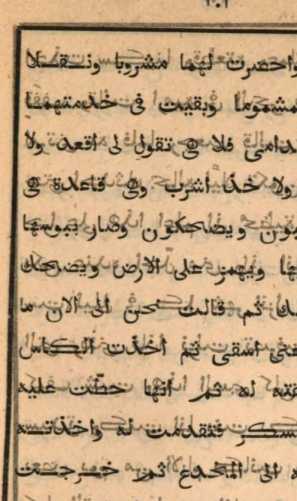 ٢٠٢
واحضرت لهما مشروبا ونقلا
مشموما وبقيت فى خدمتهما
فلا هى تقول لى اقعد ولا
ولا خذ اشرب وهى قاعدة هى
ويضحكون وصار يبوسها
ويهمز على الارض ويضحك
ثم قالت نحن الى الان ما
اسقى ثم أخذت الكاس
له ثم انها حطت عليه
فتقدمت له واخذته
الى المخدع ثم خرجت